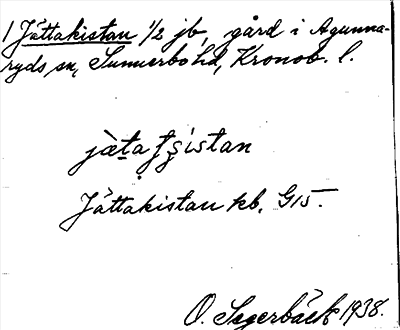 1 Jättakistan 1/2 jb, gård i Agunna-
ryds sn, Sunnerbo hd, Kronob. l.
Jättakistan kb. G15.
O. Segerbäck 1938.